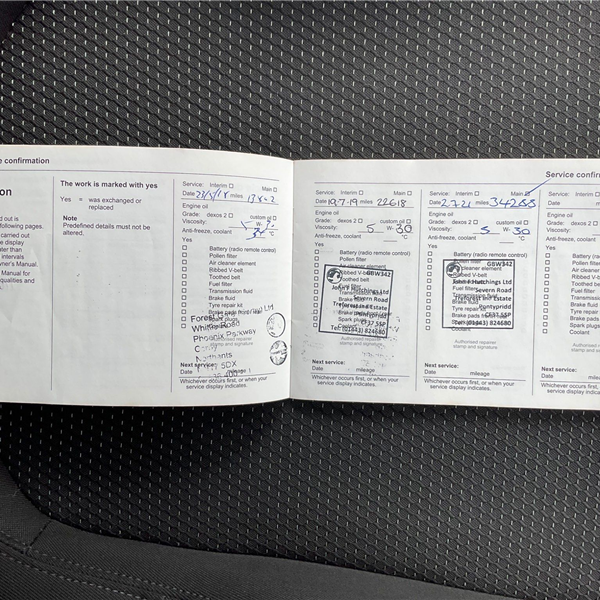 e confirmation
on
d out is
following pages.
carried out
e display
ater than
intervals
wner's Manual.
Manual for
qualities and
The work is marked with yes
Yes = was exchanged or
replaced
Note
Predefined details must not be
altered.
Service: Interim Main
Date miles
Engine oil
Grade: dexos 2 custom oil
Viscosity: W-
Anti-freeze, coolant °C
Yes
Battery (radio remote control)
Pollen filter
Air cleaner element
Ribbed V-belt
Toothed belt
Fuel filter
Transmission fluid
Brake fluid
Tyre repair kit
Brake pads front/rear
Spark plugs
Coolant
Phoenix Parkway
Northants
Authorised repairer
stamp and signature
Next service:
Date mileage
Whichever occurs first, or when your
service display indicates.
Service: Interim Main
Date 19.7.19 miles 22618
Engine oil
Grade: dexos 2 custom oil
Viscosity: 5 W- 30
Anti-freeze, coolant °C
Yes
Battery (radio remote control)
Pollen filter
Air cleaner element
Ribbed V-belt
Toothed belt
Fuel filter
Brake fluid
Tyre repair kit
Spark plugs
Coolant
GBW342
John Hutchings Ltd
Severn Road
Treforest Ind Estate
Pontypridd
CF37 5SP
Tel: (01443) 824680
Next service:
Date mileage
Whichever occurs first, or when your
service display indicates.
Service confirm
Service: Interim Main
Date 2.7.21 miles
Engine oil
Grade: dexos 2 custom oil
Viscosity: 5 W- 30
Anti-freeze, coolant °C
Yes
Battery (radio remote control)
Pollen filter
Air cleaner element
Ribbed V-belt
Toothed belt
Fuel filter
Transmission fluid
Brake fluid
Tyre repair kit
Brake pads
Spark plugs
Coolant
GBW342
John Hutchings Ltd
Severn Road
Treforest Ind Estate
Pontypridd
CF37 5SP
Tel: (01443) 824680
Authorised repairer
stamp and signature
Next service:
Date mileage
Whichever occurs first, or when your
service display indicates.
Service: Interim
Date m
Engine oil
Grade: dexos 2
Viscosity:
Anti-freeze, coolant
Yes
Battery (radio
Pollen filter
Air cleaner e
Ribbed V-be
Toothed belt
Fuel filter
Transmission
Brake fluid
Tyre repair
Brake pads
Spark plugs
Coolant
Authoris
stamp an
Next service:
Date mile
Whichever occurs first,
service display indicate